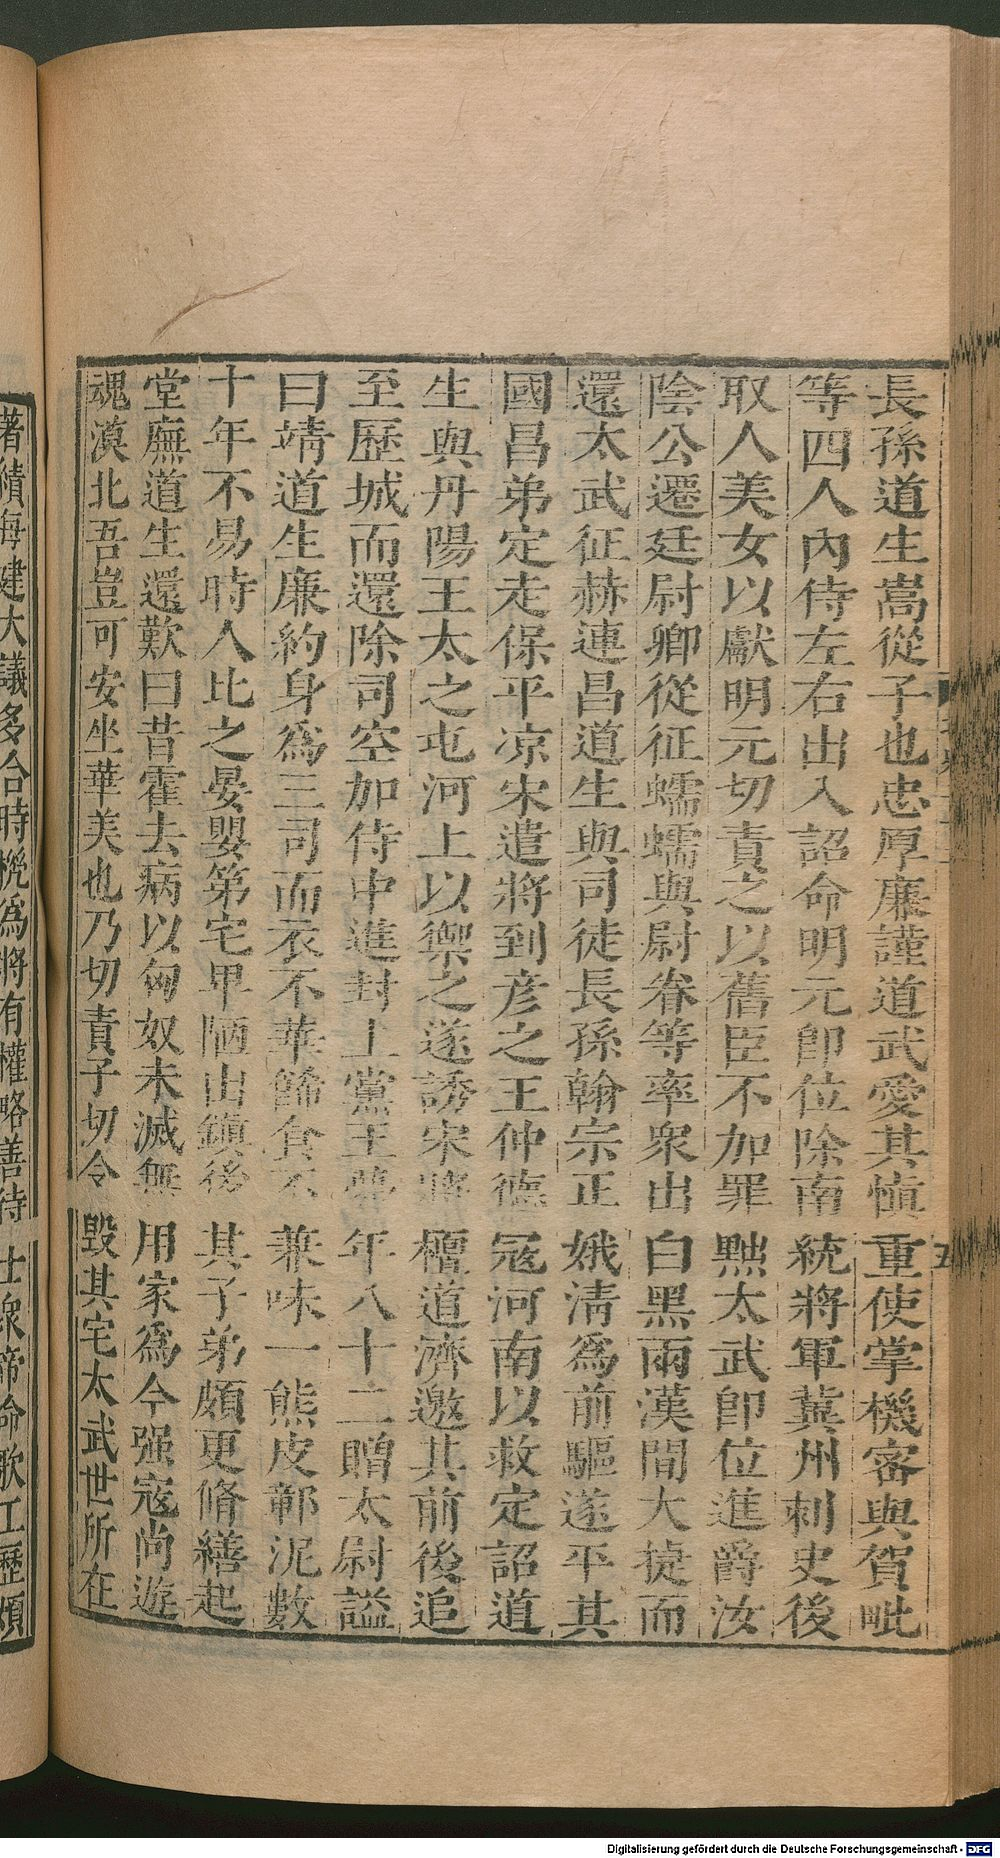 長孫道生嵩從子也忠厚廉謹道武愛其慎重使掌機密與賀毗
等四人內侍左右出入詔命明元卽位除南統將軍冀州刺史後
取人美女以獻明元切責之以舊臣不加罪黜太武卽位進爵汝
陰公遷廷尉卿從征蠕蠕與尉眷等率衆出白黑兩漢間大捷而
還太武征赫連昌道生與司徒長孫翰宗正娥淸爲前驅遂平其
國昌弟定走保平凉宋遣將到彦之王仲德冦河南以救定詔道
生與丹陽王太之屯河上以禦之遂誘宋將檀道濟邀其前後追
至歷城而還除司空加侍中進封上黨王薨年八十二贈太尉謚
曰靖道生廉約身爲三司而衣不華餙食不兼味一熊皮鄣泥數
十年不易時人比之晏嬰第宅卑陋出鎭後其子弟頗更脩繕起
堂廡道生還歎曰昔霍去病以匈奴未滅無用家爲今强寇尚遊
魂漠北吾豈可安坐華美也乃切責子切令毀其宅太武世所在
著績每建大議多合時機爲將有權略善待士衆帝命歌工歷頌
Digitalisierung gefördert durch die Deutsche Forschungsgemeinschaft - DFG